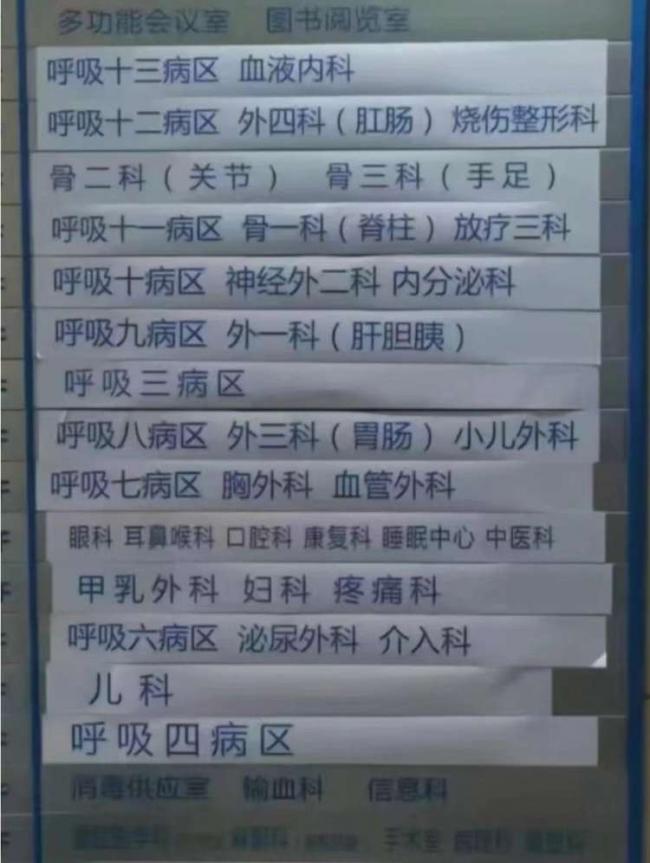 多功能会议室 图书阅览室
呼吸十三病区 血液内科
呼吸十二病区 外四科（肛肠） 烧伤整形科
骨二科（关节） 骨三科（手足）
呼吸十一病区 骨一科（脊柱） 放疗三科
呼吸十病区 神经外二科 内分泌科
呼吸九病区 外一科（肝胆胰）
呼吸三病区
呼吸八病区 外三科（胃肠） 小儿外科
呼吸七病区 胸外科 血管外科
眼科 耳鼻喉科 口腔科 康复科 睡眠中心 中医科
甲乳外科 妇科 疼痛科
呼吸六病区 泌尿外科 介入科
儿科
呼吸四病区
消毒供应室 输血科 信息科
手术室